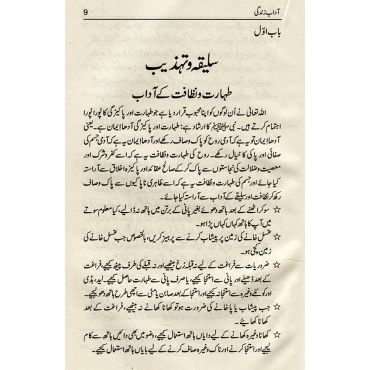 آدابِ زندگی
9
باب اوّل
سلیقہ و تہذیب
طہارت و نظافت کے آداب
اللہ تعالیٰ نے اُن لوگوں کو اپنا محبوب قرار دیا ہے جو طہارت اور پاکیزگی کا پورا پورا
اہتمام کرتے ہیں۔ نبی ﷺ کا ارشاد ہے: طہارت اور پاکیزگی آدھا ایمان ہے۔ یعنی
آدھا ایمان تو یہ ہے کہ آدمی روح کو پاک و صاف رکھے اور آدھا ایمان یہ ہے کہ آدمی جسم کی
صفائی اور پاکی کا خیال رکھے۔ روح کی طہارت و نظافت یہ ہے کہ اسے کفر و شرک اور
معصیت و ضلالت کی نجاستوں سے پاک کر کے صالح عقائد اور پاکیزہ اخلاق سے آراستہ
کیا جائے اور جسم کی طہارت و نظافت یہ ہے کہ اسے ظاہری ناپاکیوں سے پاک و صاف
رکھ کر نظافت اور سلیقے کے آداب سے آراستہ کیا جائے۔
☆ سو کر اٹھنے کے بعد ہاتھ دھوئے بغیر پانی کے برتن میں ہاتھ نہ ڈالیے، کیا معلوم سوتے
میں آپ کا ہاتھ کہاں کہاں پڑا ہو۔
☆ غسل خانے کی زمین پر پیشاب کرنے سے پرہیز کریں، بالخصوص جب غسل خانے کی
زمین کچی ہو۔
☆ ضروریات سے فراغت کے لیے نہ قبلہ رخ بیٹھیے اور نہ قبلے کی طرف پیٹھ کیجیے، فراغت کے
بعد ڈھیلے اور پانی سے استنجا کیجیے یا صرف پانی سے طہارت حاصل کیجیے۔ لید، ہڈی
اور کوئلے وغیرہ سے استنجا نہ کیجیے اور استنجا کے بعد صابن یا مٹی سے اچھی طرح ہاتھ دھو لیجیے۔
☆ جب پیشاب یا پاخانے کی ضرورت ہو تو کھانا کھانے نہ بیٹھیے، فراغت کے بعد
کھانا کھائیے۔
☆ کھانا وغیرہ کھانے کے لیے دایاں ہاتھ استعمال کیجیے، وضو میں بھی دائیں ہاتھ سے کام
لیجیے اور استنجا کرنے اور ناک وغیرہ صاف کرنے کے لیے بایاں ہاتھ استعمال کیجیے۔